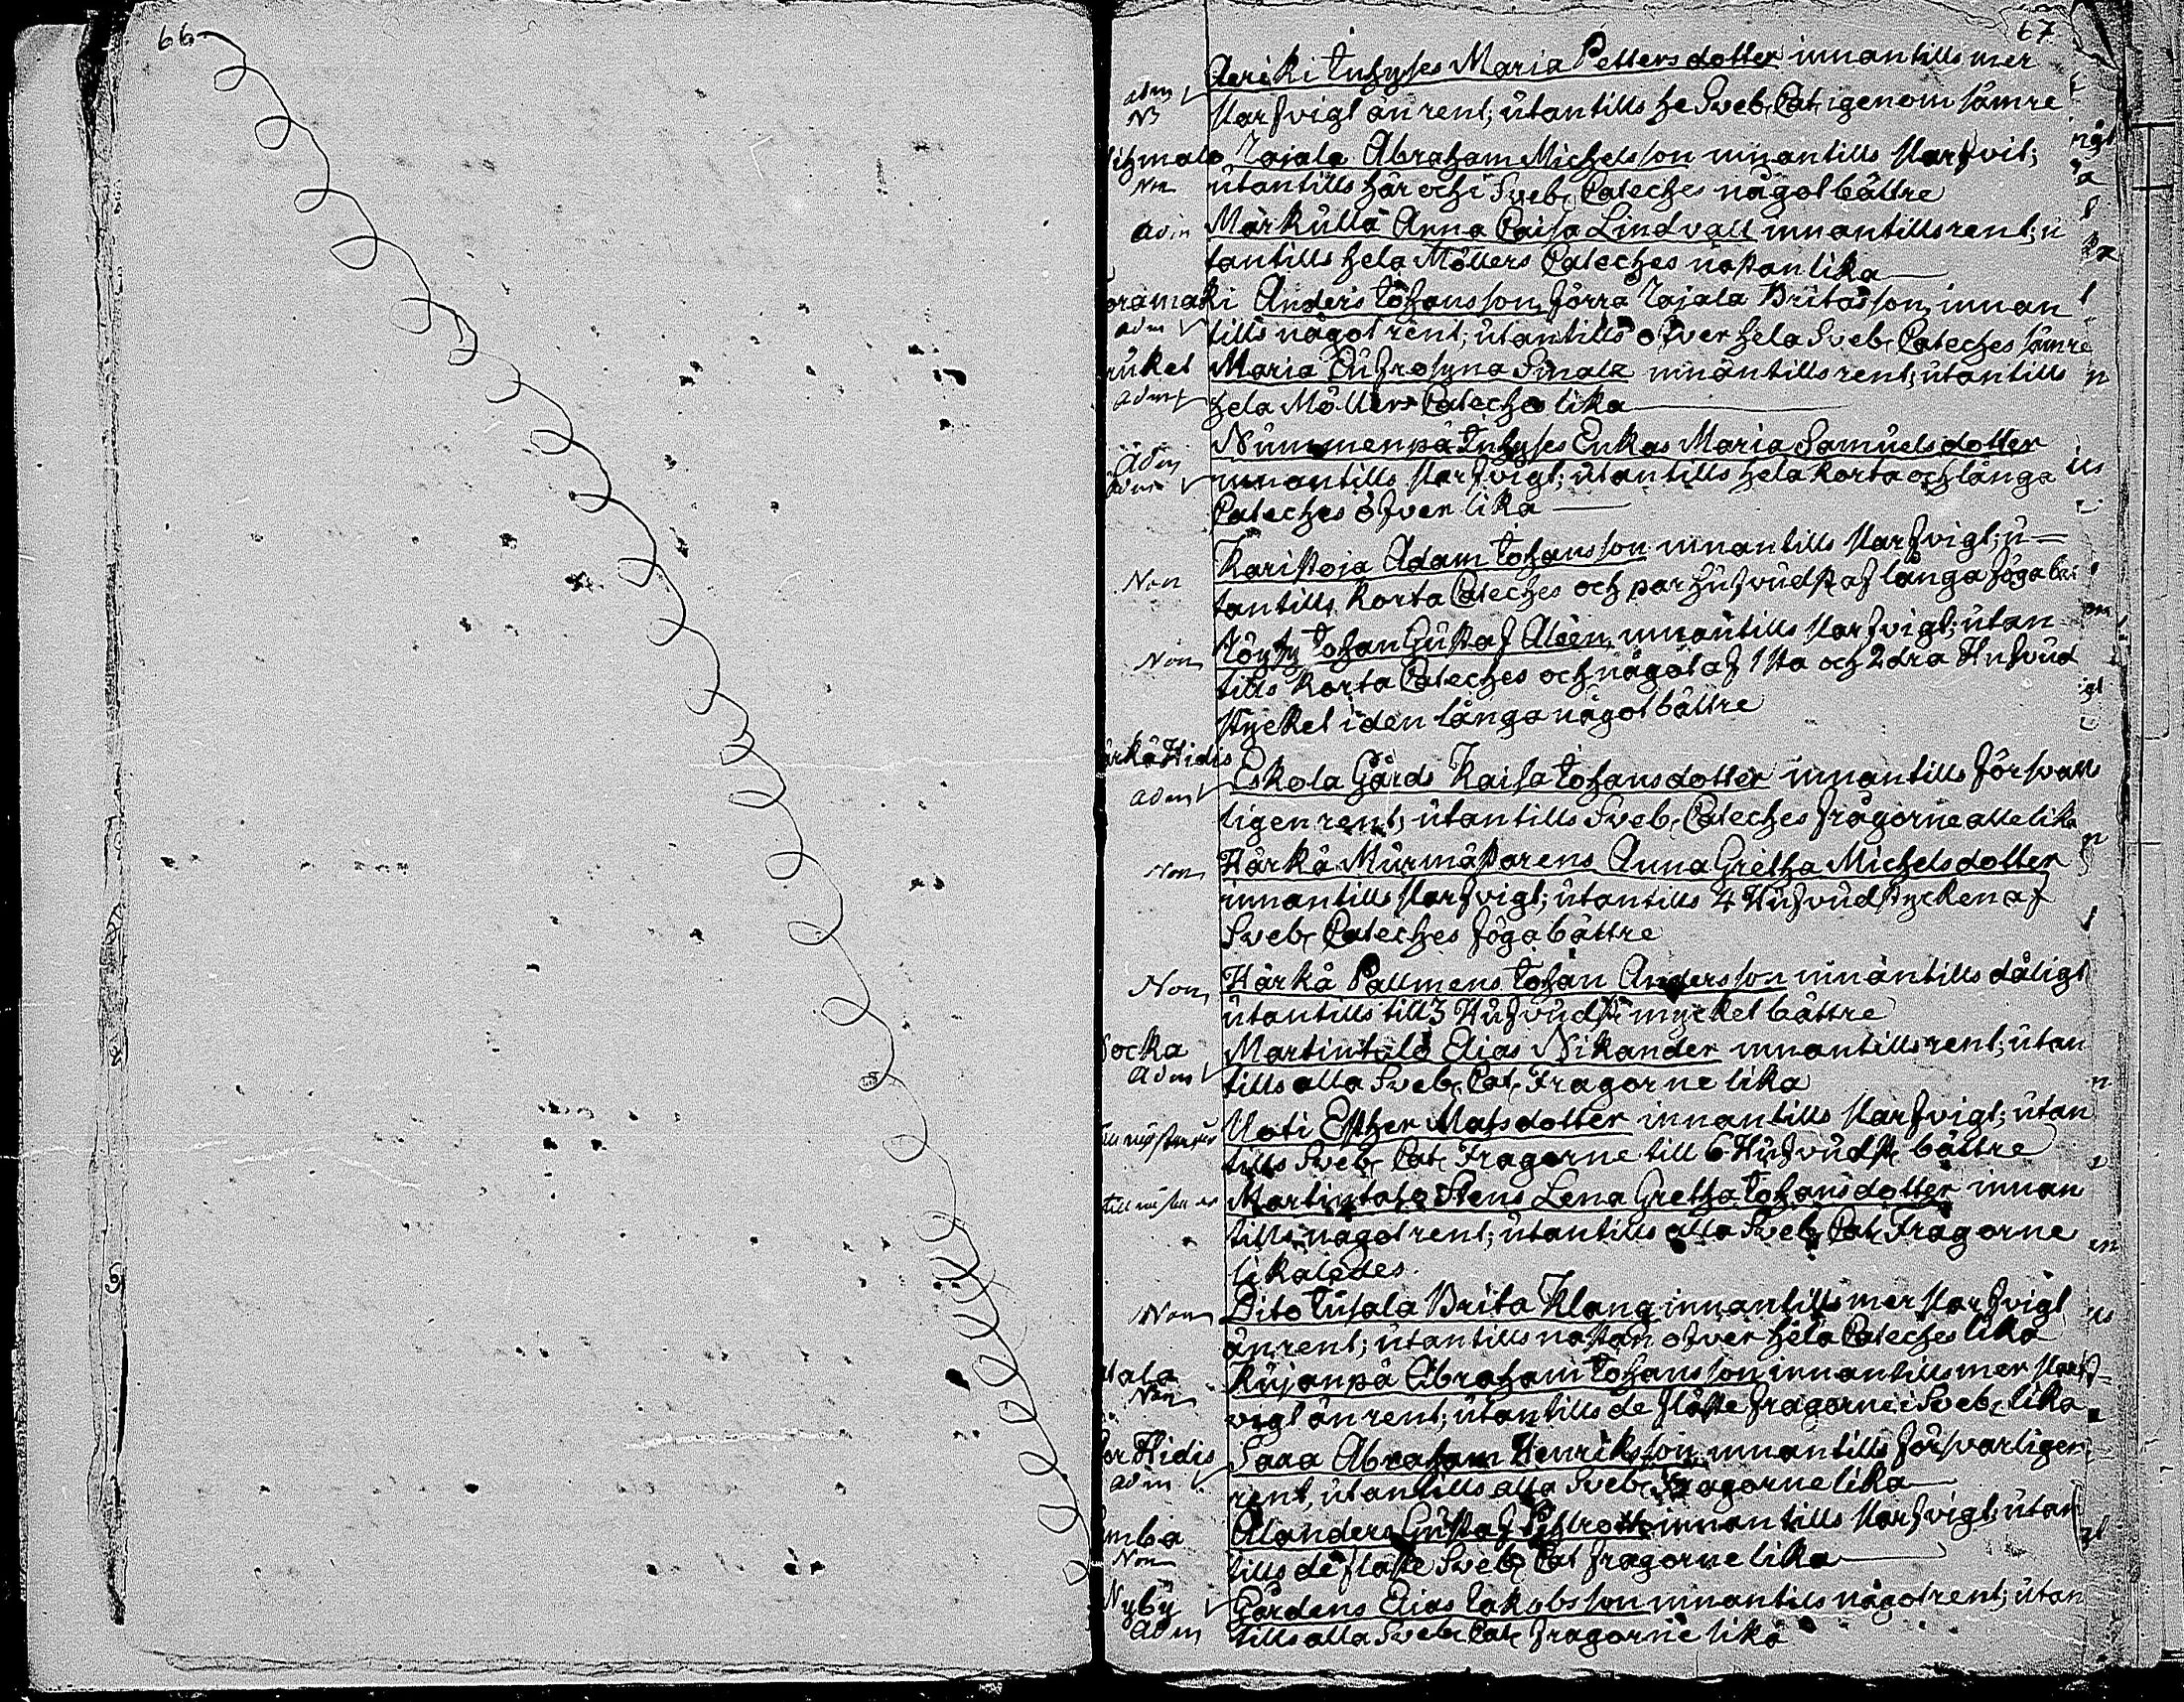 66
67
Maria Pettersdotter innantills mer
adm
starfvigt än rent; utantills he Sveb. Cat. igenom sämre
NB
Tajala Abraham Michelsson innantills starfvit;
Non utantills här och i Sveb. Cateches något bättre
adm Märkülla Anna Caisa Lindvall innantills rent; u
tantills hela Möllers Cateches nästan lika
Anders Johansson, förra Tajala Britas son, innan
adm tills något rent; utantills öfver hela Sveb. Cateches sämre
Maria Eufrosyna Smala innantills rent; utantills
adm hela Möllers Cateches lika
Nummenpä Enkas Maria Samuelsdotter
adm innantills starfvigt; utantills hela korta och långa
Cateches öfver lika
Karistoja Adam Johansson innantills starfvigt; u
Non tantills korta Cateches och par hufvudst. af långa föga bät
Johan Gustaf innantills starfvigt; utan
Non tills korta Cateches och något af 1sta och 2dra Hufvud
stycket i den långa något bättre
Härkä Hidis
adm Eskola Gårds Kaisa Johansdotter innantills försvar
ligen rent; utantills Sveb. Cateches frågorne alle lika
Non Härkä Murmästarens Anna Gretha Michelsdotter
innantills starfvigt; utantills 4 Hufvudstycken af
Sveb. Cateches föga bättre
Non Härkä Pallmens Johan Andersson innantills dåligt
utantills till 3 Hufvudst. mycket bättre
Socka Martintalo Elias Nikander innantills rent; utan
adm tills alla Sveb. Cat. Frågorne lika
Uoti Esther Matsdotter innantills starfvigt; utan
tills Sveb. Cat. Frågorne till 6 Hufvudst. bättre
Martintalo Stens Lena Gretha Johansdotter innan
tills något rent; utantills alla Sveb. Cat. Frågorne
likaledes.
Non Dito Tusala Brita Klang innantills mer starfvigt
än rent; utantills nästan öfver hela Cateches lika
Kujanpä Abraham Johansson innantills mer starf
Non vigt än rent; utantills de fläste frågorne i Sveb. lika
Hidis Saxa Abraham Henriksson innantills försvarligen
adm rent, utantills alla Sveb. Frågorne lika
Gustaf innantills starfvigt; utan
Non tills de fläste Sveb. Cat. frågorne lika
Nyby Gårdens Elias Jakobsson innantils något rent; utan
adm tills alla Sveb. Cat. frågorne lika